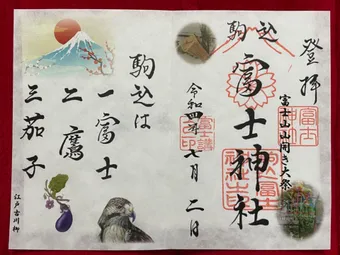 登拝
富士山山開き大祭
駒込
富士神社
令和四年七月二日
駒込は
一富士
二鷹
三茄子
江戸古川柳